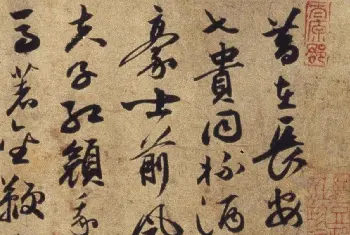 昔在長安
七貴同杯酒
豪士前風
夫子紅顏我
馬著金鞭